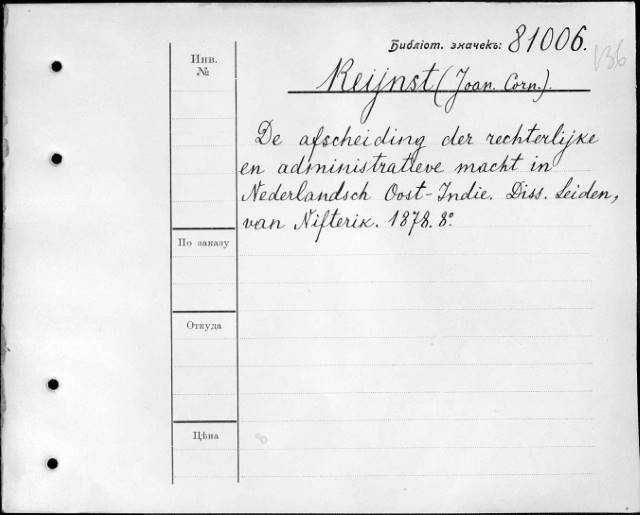 Библіот. значекъ: 81006.
136
Инв.
№
Reijnst (Joan. Corn.).
De afscheiding der rechterlijke
en administratieve macht in
Nederlandsch Oost-Indie. Diss. Leiden,
van Nifterik. 1878. 8º
По заказу
Откуда
Цѣна